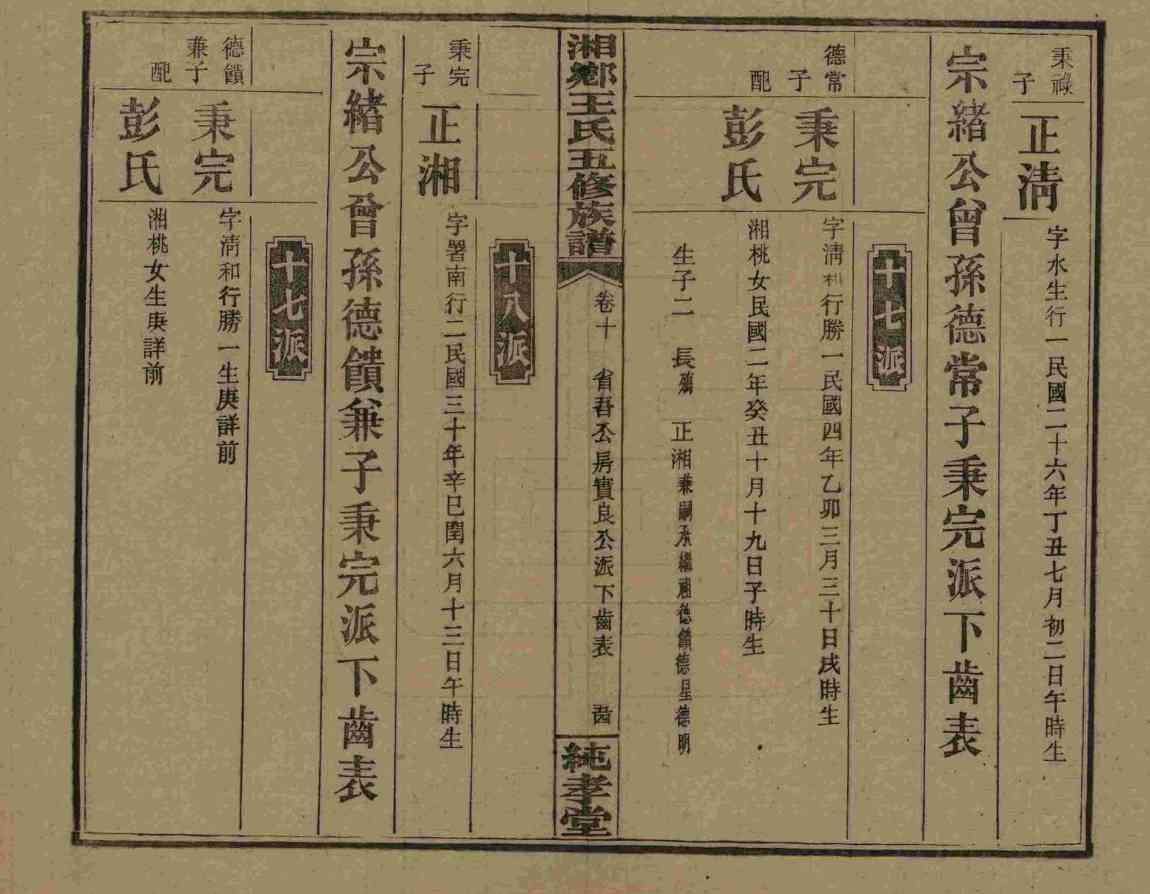 秉祿子
正清
字水生行一民國二十六年丁丑七月初二日午時生
宗緒公曾孫德常子秉完派下齒表
十七派
德常子
秉完
字清和行勝一民國四年乙卯三月三十日戌時生
配
彭氏
湘桃女民國二年癸丑十月十九日子時生
生子二 長殤 正湘兼嗣承繼禋德饋德星德明
湘鄉王氏五修族譜
卷十 省吾公房實良公派下齒表 齒
純孝堂
十八派
秉完子
正湘
字署南行二民國三十年辛巳閏六月十三日午時生
宗緒公曾孫德饋兼子秉完派下齒表
十七派
德饋兼子
秉完
字清和行勝一生庚詳前
配
彭氏
湘桃女生庚詳前